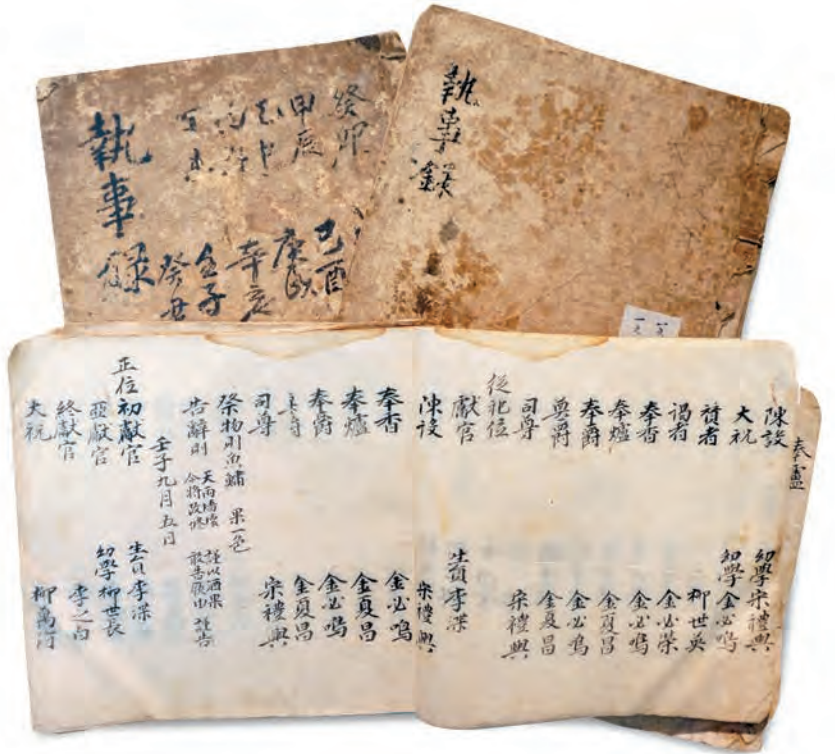 執事錄
癸卯
甲辰
己酉
庚戌
辛亥
壬子
癸丑
執事錄
陳設 幼學宋禮興
大祝 幼學金必鳴
贊者 柳世英
謁者 金必榮
奉香 金必鳴
奉爐 金夏昌
奉爵 金必鳴
奠爵 金夏昌
司尊 宋禮興
從祀位
獻官 生員李深
陳設 宋禮興
奉香 金必鳴
奉爐 金夏昌
奉爵 金必鳴
金夏昌
司尊 宋禮興
祭物則魚鱐 果一色
告辭則 天雨墻壞 今將改修 謹以酒果 敢告厥由 謹告
壬子九月五日
正位初獻官 生員李深
亞獻官 幼學柳世長
終獻官 李之白
大祝 柳萬河